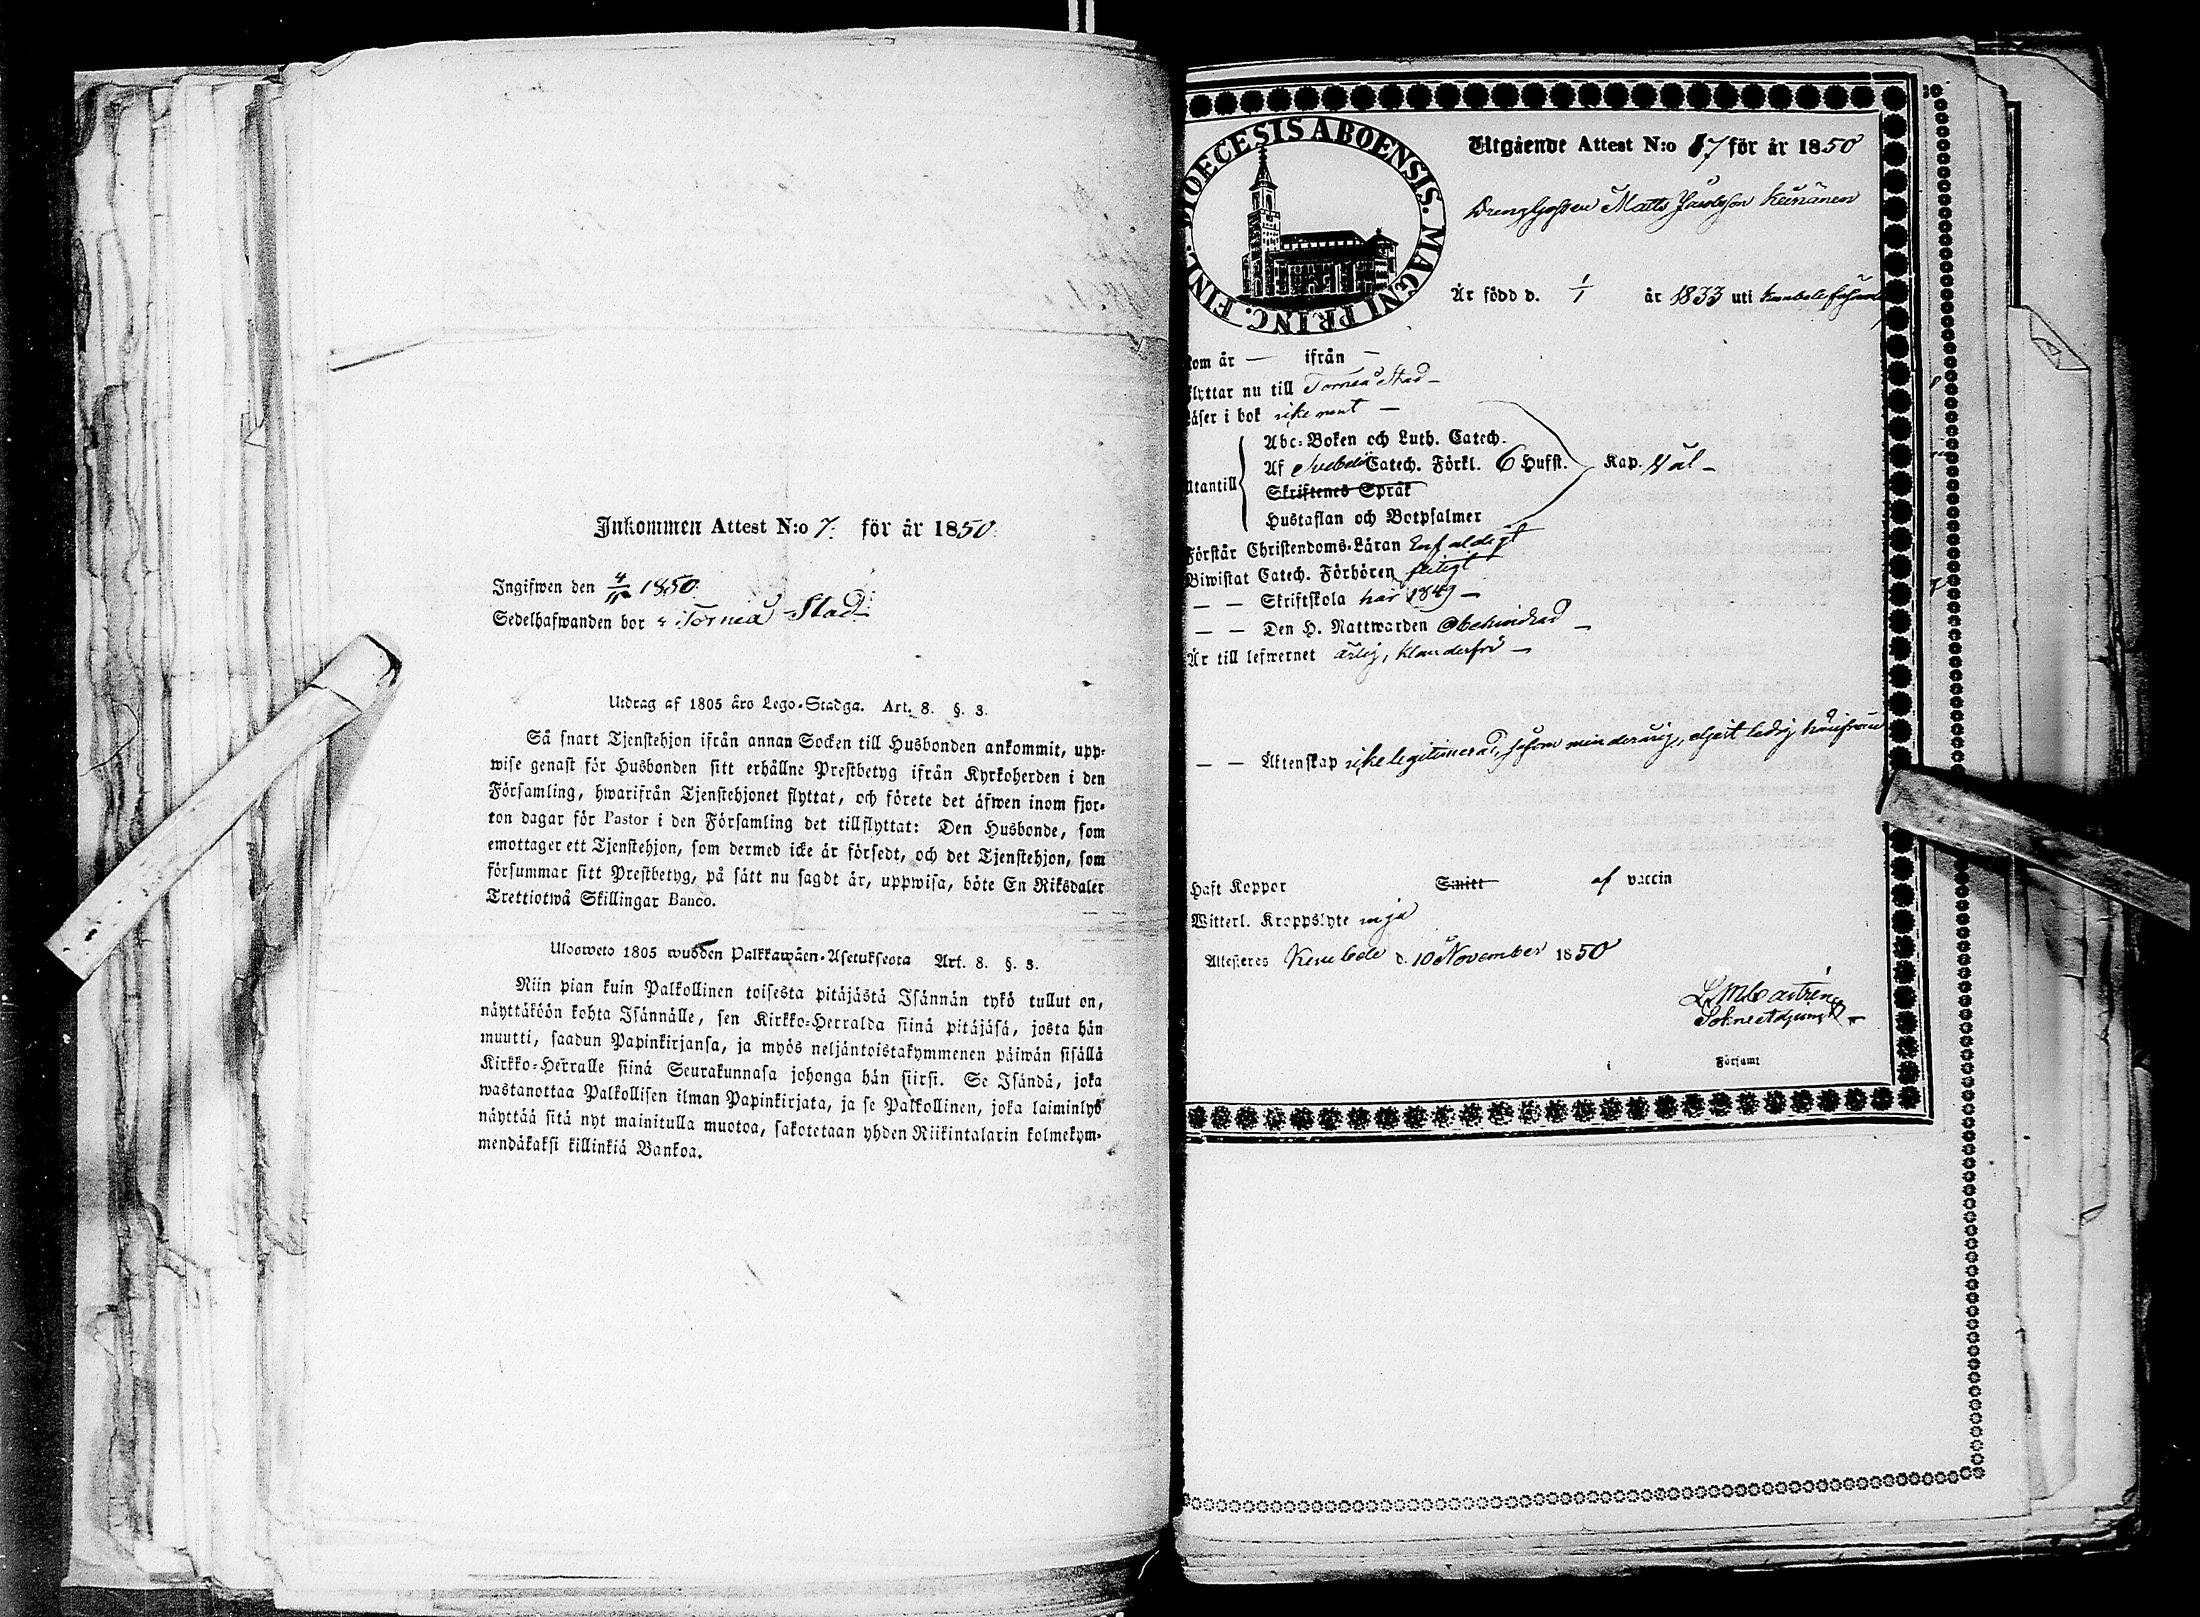 Inkommen Attest N:o 7. för år 1850.
Ingifwen den 4/11 1850.
Sedelhafwanden bor i Torneå Stad.
Utdrag af 1805 års Lego-Stadga. Art. 8. §. 3.
Så snart Tjenstehjon ifrån annan Socken till Husbonden ankommit, upp-
wise genast för Husbonden sitt erhållne Prestbetyg ifrån Kyrkoherden i den
Församling, hwarifrån Tjenstehjonet flyttat, och förete det äfwen inom fjor-
ton dagar för Pastor i den Församling det tillflyttat: Den Husbonde, som
emottager ett Tjenstehjon, som dermed icke är försedt, och det Tjenstehjon, som
försummar sitt Prestbetyg, på sätt nu sagdt är, uppwisa, böte En Riksdaler
Trettiotwå Skillingar Banco.
Ulosweto 1805 wuoden Palkkawäen-Asetuksesta Art. 8. §. 3.
Niin pian kuin Palkollinen toisesta pitäjästä Isännän tykö tullut on,
näyttäköön kohta Isännälle, sen Kirkko-Herralda siinä pitäjäsä, josta hän
muutti, saadun Papinkirjansa, ja myös neljäntoistakymmenen päiwän sisällä
Kirkko-Herralle siinä Seurakunnasa johonga hän siirsi. Se Isändä, joka
wastanottaa Palkollisen ilman Papinkirjata, ja se Palkollinen, joka laiminlyö
näyttää sitä nyt mainitulla muotoa, sakotetaan yhden Riikintalarin kolmekym-
mendäkaksi killinkiä Bankoa.
DIOECESIS ABOENSIS. MAGNI PRINC. FINL.
Utgående Attest N:o 17 för år 1850
Drenggossen Matts Jacobsson Keinänen
Är född d. 1/1 år 1833 uti
kom år — ifrån —
flyttar nu till Torneå Stad —
Läser i bok rike rent —
Abc-Boken och Luth. Catech.
Af Svebelii Catech. Förkl. 6 Hufst. Kap. Väl —
Utantill
Skriftenes Språk
Hustaflan och Botpsalmer
Förstår Christendoms-Läran Enfaldigt
Biwistat Catech. Förhören flitigt
— — Skriftskola här 1849 —
— — Den H. Nattwarden Obehindrad —
Är till lefwernet ärlig, klanderfri —
— — Äktenskap icke legitimerad, såsom minderårig, eljest ledig härifrån
Haft Koppor Smitt af vaccin
Witterl. Kroppslyte inga
Attesteras d. 10 November 1850
L M Castrén
Sokneadjunct
Församl